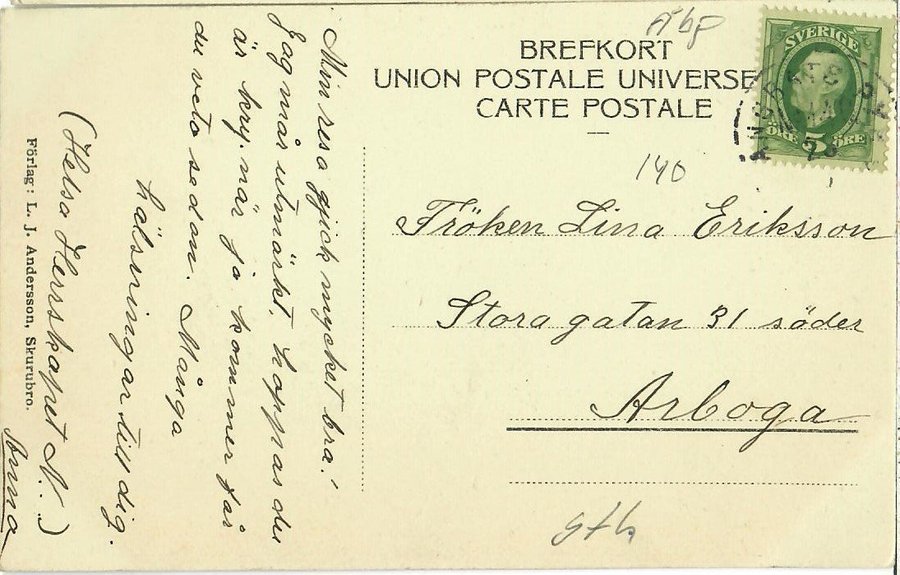 BREFKORT
UNION POSTALE UNIVERSE
CARTE POSTALE
SVERIGE
5
ÖRE
ÖRE
140
Fröken Lina Eriksson
Stora gatan 31 söder
Arboga
Sth
Min resa gick mycket bra!
Jag mår utmärkt, hoppas du
är kry. när ja kommer får
du veta sedan. Många
hälsningar till dig.
(Helsa Herrskapet N...)
Anna
Förlag: L. J. Andersson, Skurubro.